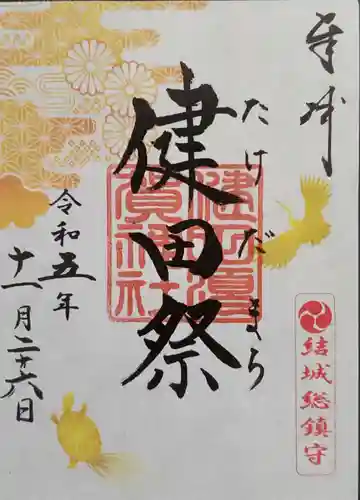 奉拝
たけだまち
健田祭
健田須
賀神社
令和五年
十一月二十六日
結城総鎮守